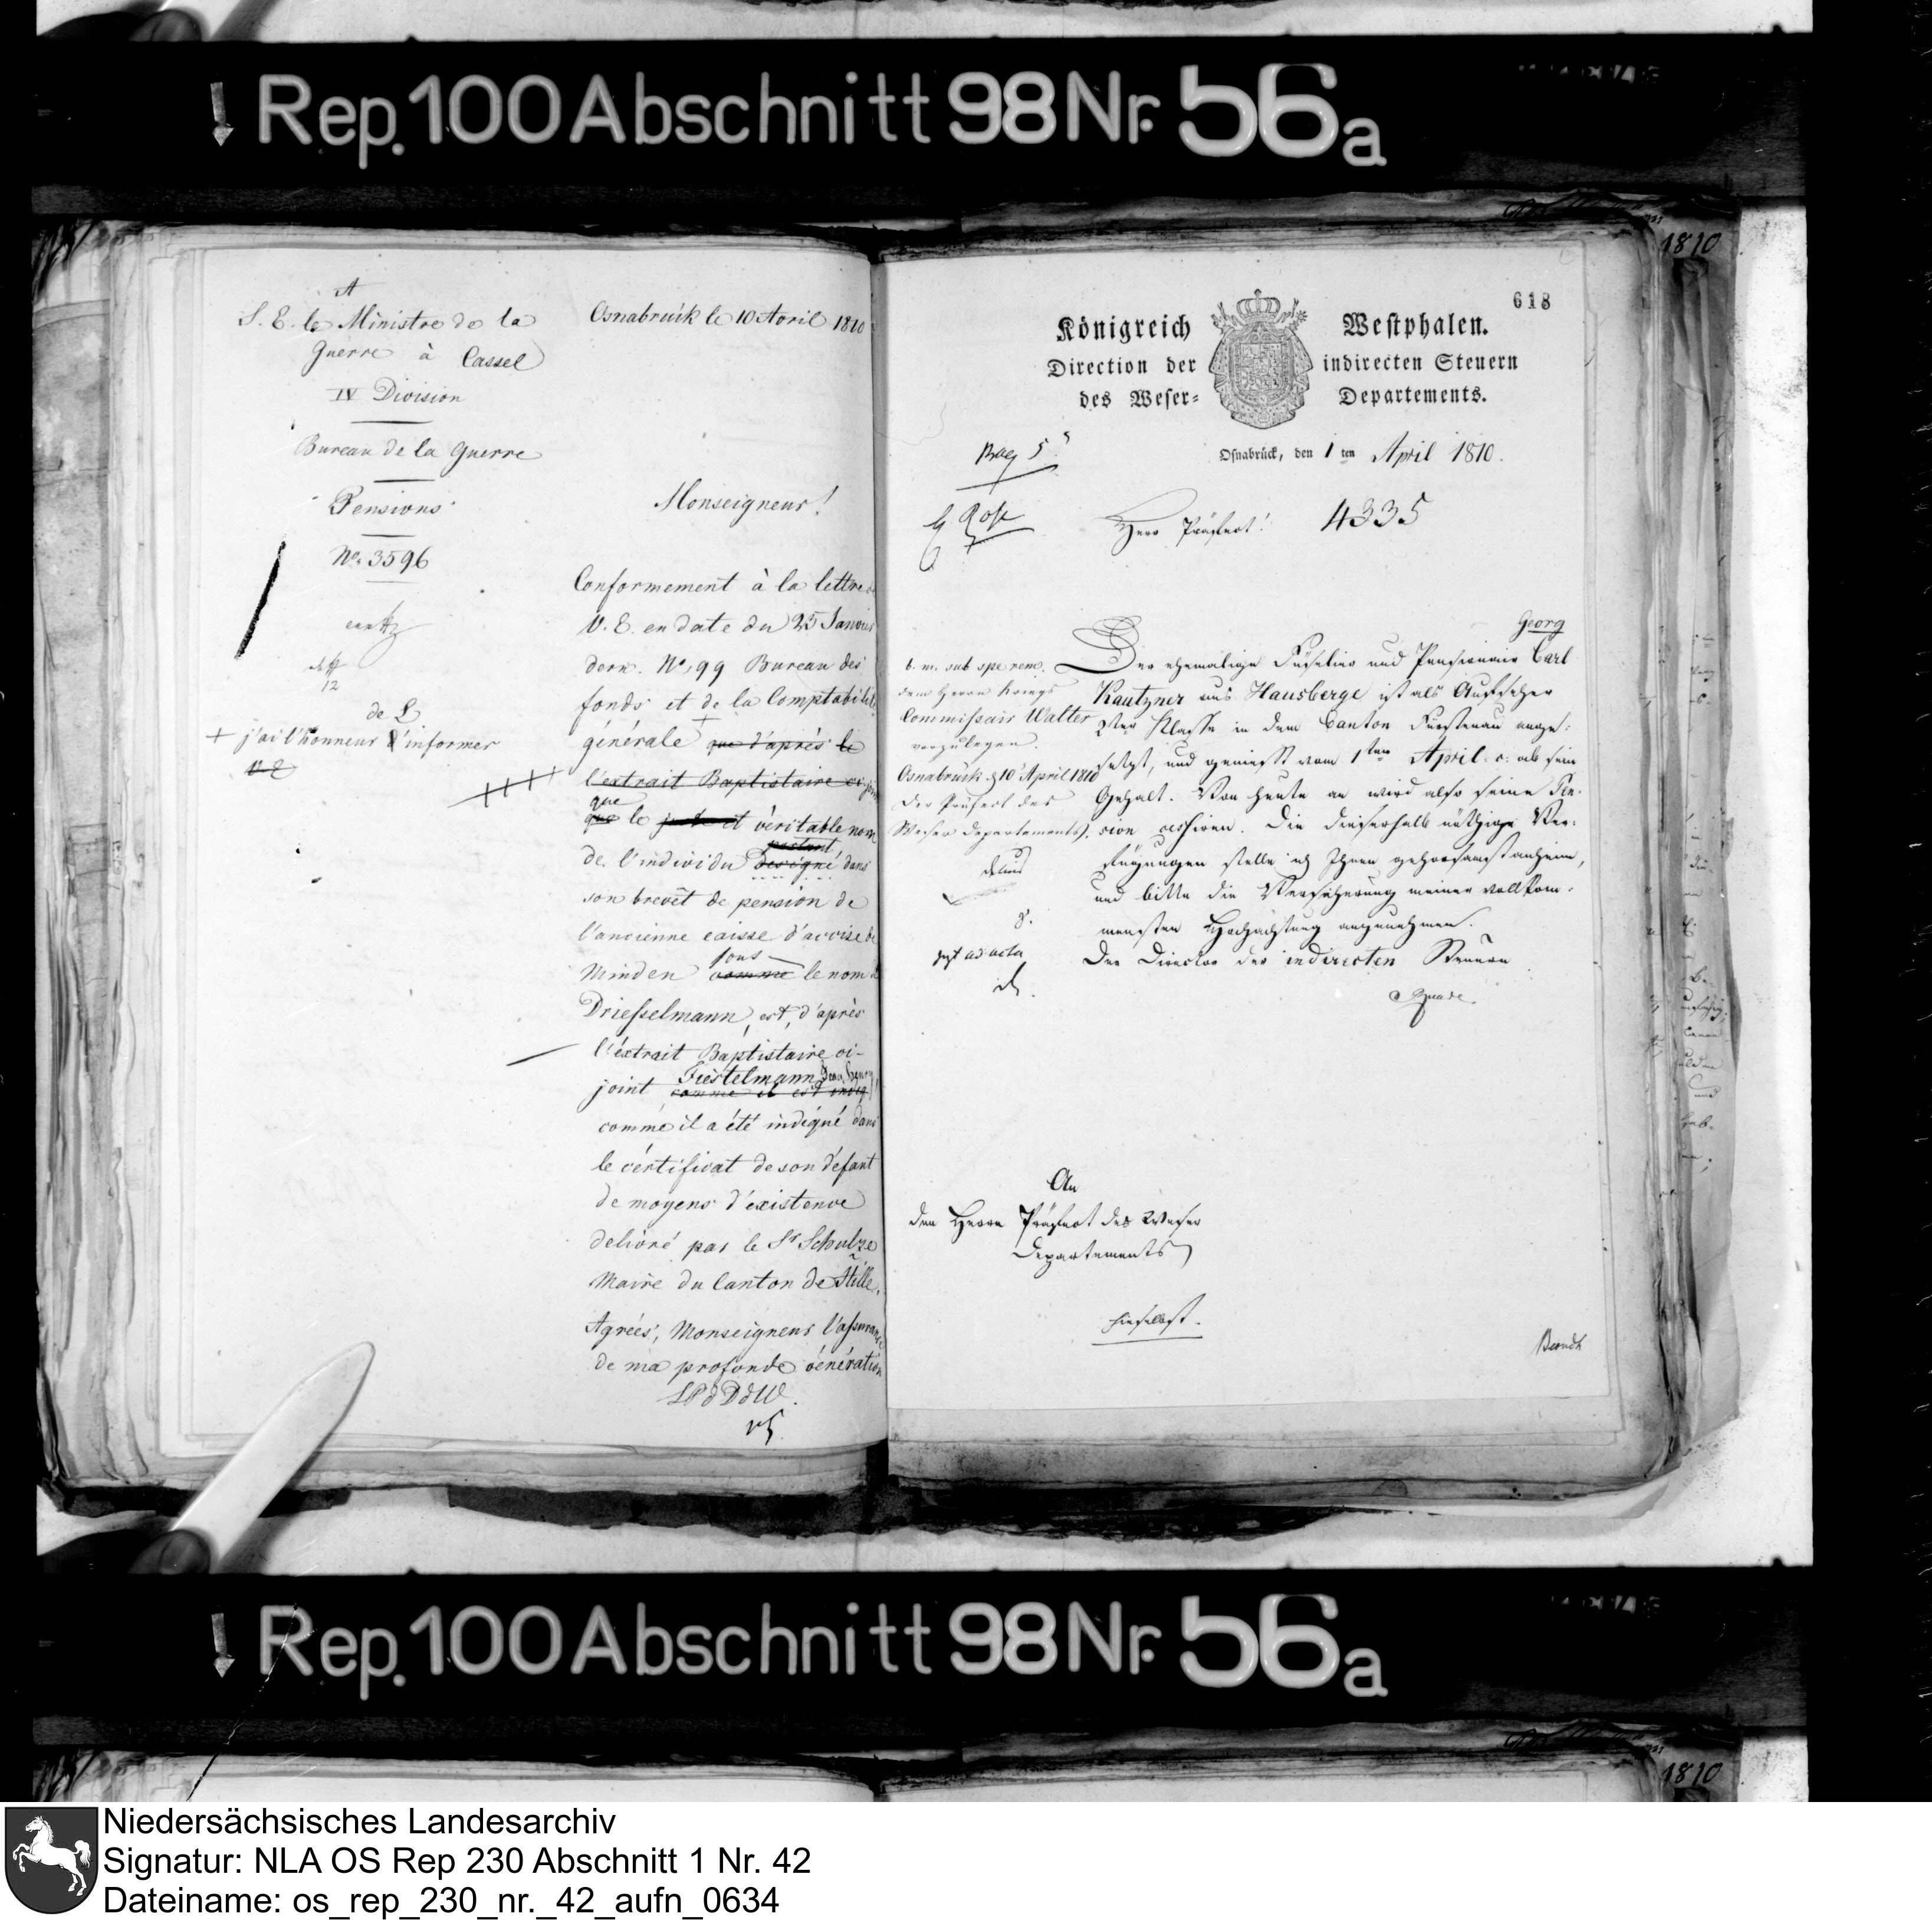 Rep. 100 Abschnitt 98 Nr. 56a
1810
A
S. E. le Ministre de la
Guerre à Cassel
IV Division
Bureau de la Guerre
Pensions
No. 3596
+ j'ai l'honneur d'informer
V. E
Osnabrück le 10 Avril 1810
Monseigneur!
Conformement à la lettre de
V. E. en date du 25 Janvier
dern. No. 99 Bureau des
fonds et de la Comptabilité
générale que d'après le
l'extrait Baptistaire ci-join
que
que le et véritable nom
portant
de l'individu designé dans
son brevêt de pension de
l'ancienne caisse d'accise de
sous
Minden comme le nom d
Driesselmann, est, d'après
l'éxtrait Baptistaire ci-
Fiestelmann, Jean Henry
joint comme il est indiq
comme il a été indiqué dans
le cértificat de son défaut
de moyens d'éxistence
delivré par le Sr Schulze
Maire du Canton de Stille.
Agrées, Monseigneur l'assurance
de ma profonde vénération
LPdDdW.
618
Königreich Westphalen.
Direction der indirecten Steuern
des Weser- Departements.
Osnabrück, den 1ten April 1810.
Herr Präfect! 4335
Georg
Der ehemalige Füselier und Pensionair Carl
Kautzner aus Hausberge ist als Aufseher
2ter Klasse in dem Canton Fürstenau ange-
setzt, und genießt vom 1ten April c. ab sein
Gehalt. Von heute an wird also seine Pen-
sion cessiren. Die dieserhalb nöthige Ver-
fügungen stelle ich Ihnen gehorsamst anheim,
und bitte die Versicherung meiner vollkom-
mensten Hochachtung anzunehmen.
Der Director der indirecten Steuern
b. m. sub spe rem.
dem Herrn Kriegs
Commissair Walter
vorzulegen.
Osnabrück d 10 April 1810
Der Präfect des
Weser Departements.
ad acta
An
den Herrn Präfect des Weser
Departements
hieselbst.
Rep. 100 Abschnitt 98 Nr. 56a
1810
Niedersächsisches Landesarchiv
Signatur: NLA OS Rep 230 Abschnitt 1 Nr. 42
Dateiname: os_rep_230_nr._42_aufn_0634